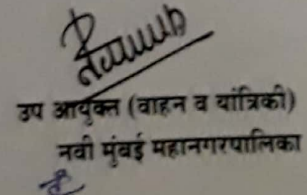 उप आयुक्त (वाहन व यांत्रिकी)
नवी मुंबई महानगरपालिका